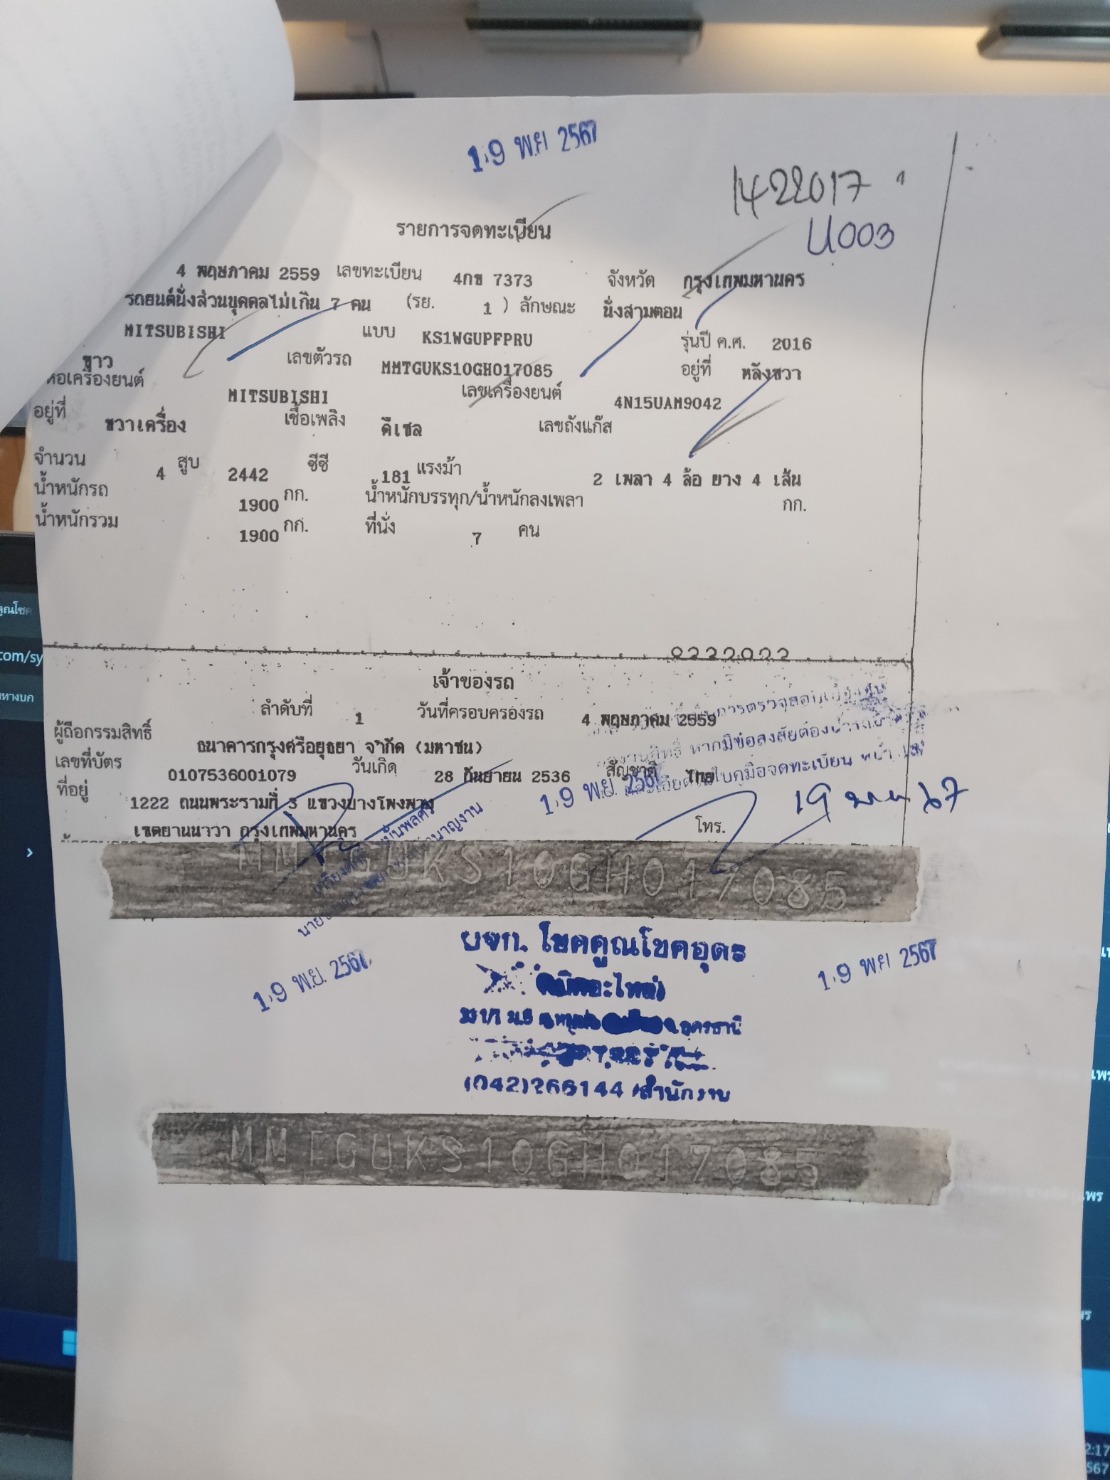 19 พ.ย. 2567
1422017
U003
รายการจดทะเบียน
4 พฤษภาคม 2559 เลขทะเบียน 4กข 7373 จังหวัด กรุงเทพมหานคร
รถยนต์นั่งส่วนบุคคลไม่เกิน 7 คน (รย. 1 ) ลักษณะ นั่งสามตอน
MITSUBISHI แบบ KS1WGUPFPRU รุ่นปี ค.ศ. 2016
ขาว เลขตัวรถ MMTGUKS10GH017085 อยู่ที่ หลังขวา
ห้อเครื่องยนต์ MITSUBISHI เลขเครื่องยนต์ 4N15UAM9042
อยู่ที่ ขวาเครื่อง เชื้อเพลิง ดีเซล เลขถังแก๊ส
จำนวน 4 สูบ 2442 ซีซี 181 แรงม้า 2 เพลา 4 ล้อ ยาง 4 เส้น
น้ำหนักรถ 1900 กก. น้ำหนักบรรทุก/น้ำหนักลงเพลา กก.
น้ำหนักรวม 1900 กก. ที่นั่ง 7 คน
เจ้าของรถ
ลำดับที่ 1 วันที่ครอบครองรถ 4 พฤษภาคม 2559
ผู้ถือกรรมสิทธิ์ ธนาคารกรุงศรีอยุธยา จำกัด (มหาชน)
เลขที่บัตร 0107536001079 วันเกิด 28 กันยายน 2536 สัญชาติ ไทย
ที่อยู่ 1222 ถนนพระรามที่ 3 แขวงบางโพงพาง
เขตยานนาวา กรุงเทพมหานคร โทร.
การตรวจสอบ
หากมีข้อสงสัยต้อง
ใบคู่มือจดทะเบียน
19 พ.ย. 2567
19 พ.ย. 67
MMTGUKS10GH017085
19 พ.ย. 2567
19 พ.ย. 2567
ผจก. โชคคูณโชคอุดร
อะไหล่
ม.5 อุดรธานี
(042)266144 สำนักงาน
MMTGUKS10GH017085